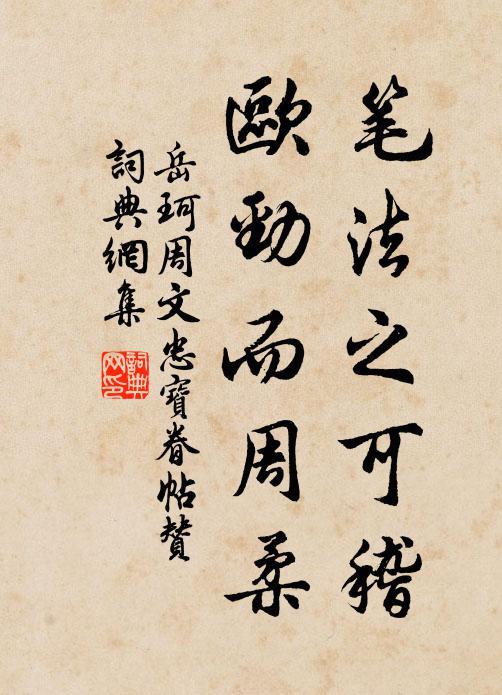 笔法之可稽
歐勁而周柔
岳珂周文忠寶眷帖贊
詞典網集
詞典网印